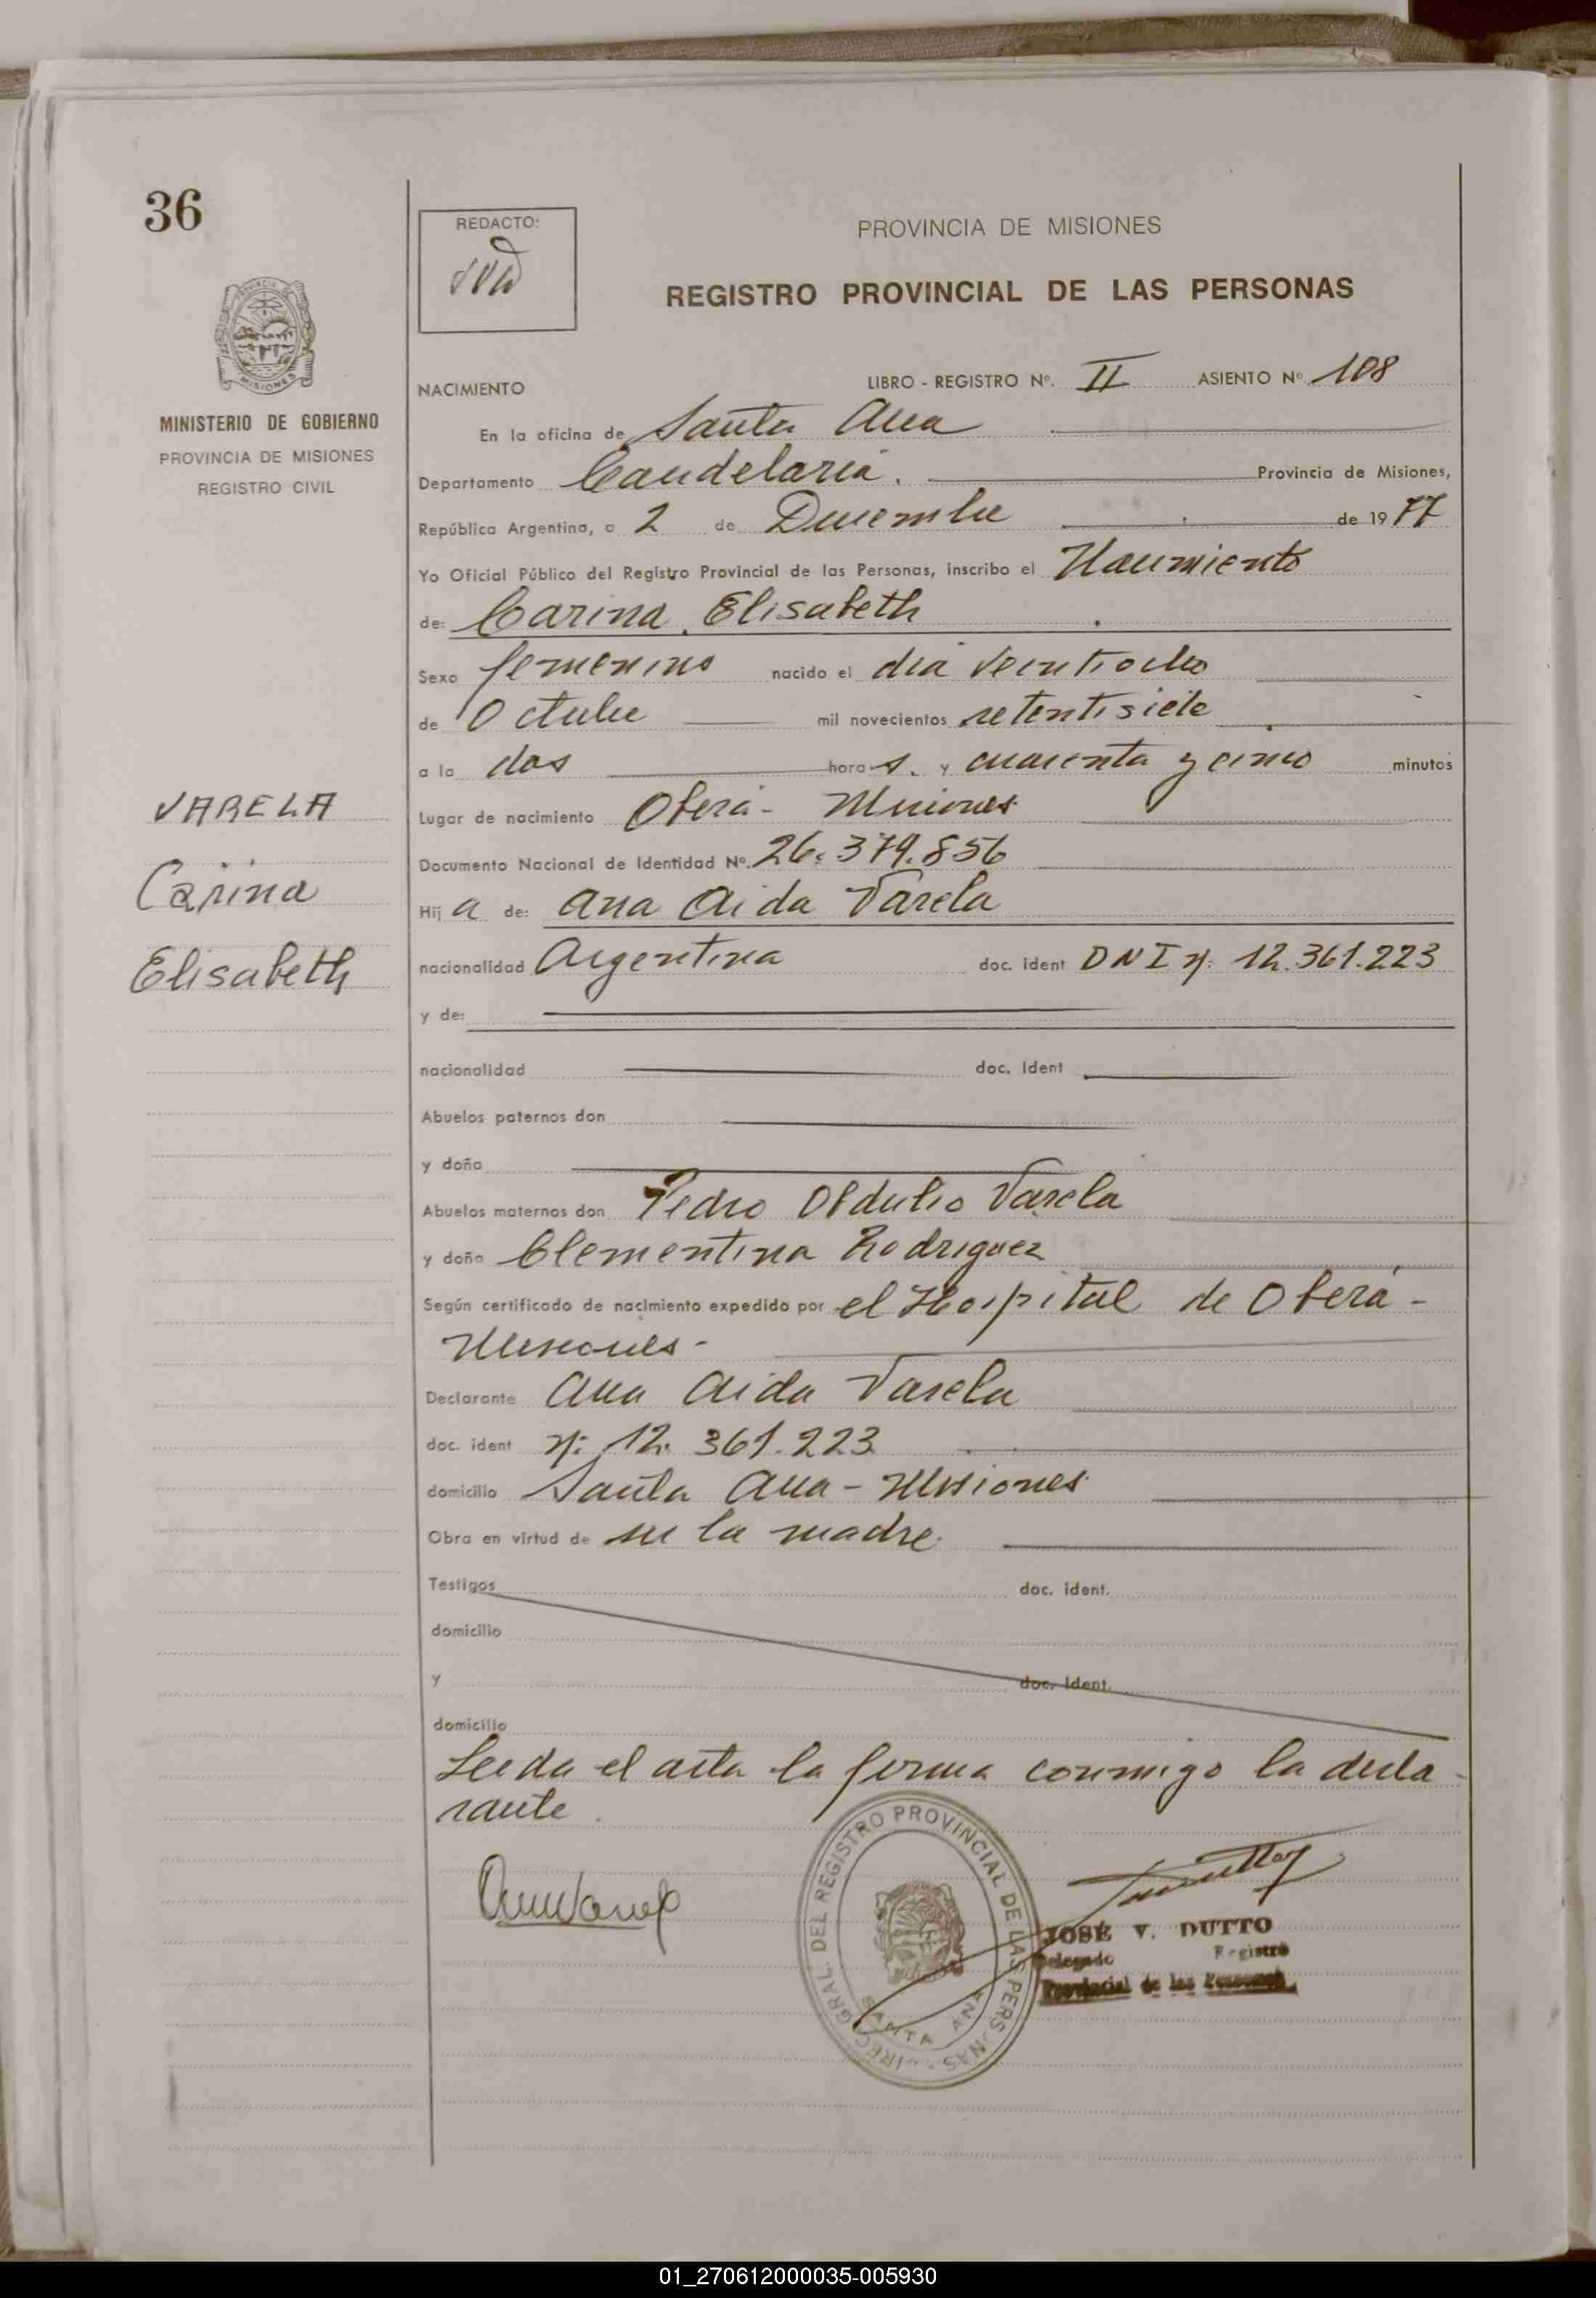 36
REDACTO:
PROVINCIA DE MISIONES
REGISTRO PROVINCIAL DE LAS PERSONAS
PROVINCIA DE
MISIONES
MINISTERIO DE GOBIERNO
PROVINCIA DE MISIONES
REGISTRO CIVIL
NACIMIENTO LIBRO - REGISTRO Nº. II ASIENTO Nº 108
En la oficina de Santa Ana
Departamento Candelaria. Provincia de Misiones,
República Argentina, a 2 de Diciembre de 1977
Yo Oficial Público del Registro Provincial de las Personas, inscribo el Nacimiento
de: Carina Elisabeth
Sexo femenino nacido el dia veintiocho
de Octubre mil novecientos setentisiete
a la dos hora s. y cuarenta y cinco minutos
VARELA
Carina
Elisabeth
Lugar de nacimiento Oberá - Misiones
Documento Nacional de Identidad Nº. 26.379.856
Hij a de: Ana Aida Varela
nacionalidad Argentina doc. ident DNI nº 12.361.223
y de:
nacionalidad doc. ident
Abuelos paternos don
y doña
Abuelos maternos don Pedro Obdulio Varela
y doña Clementina Rodriguez
Según certificado de nacimiento expedido por el Hospital de Oberá -
Misiones -
Declarante Ana Aida Varela
doc. ident nº 12.361.223
domicilio Santa Ana - Misiones
Obra en virtud de ser la madre.
Testigos doc. ident.
domicilio
y doc. ident.
domicilio
Leida el acta la firma conmigo la decla-
rante.
DIREC. GRAL. DEL REGISTRO PROVINCIAL DE LAS PERSONAS
SANTA ANA
JOSE V. DUTTO
Delegado Registro
Provincial de las Personas
01_270612000035-005930